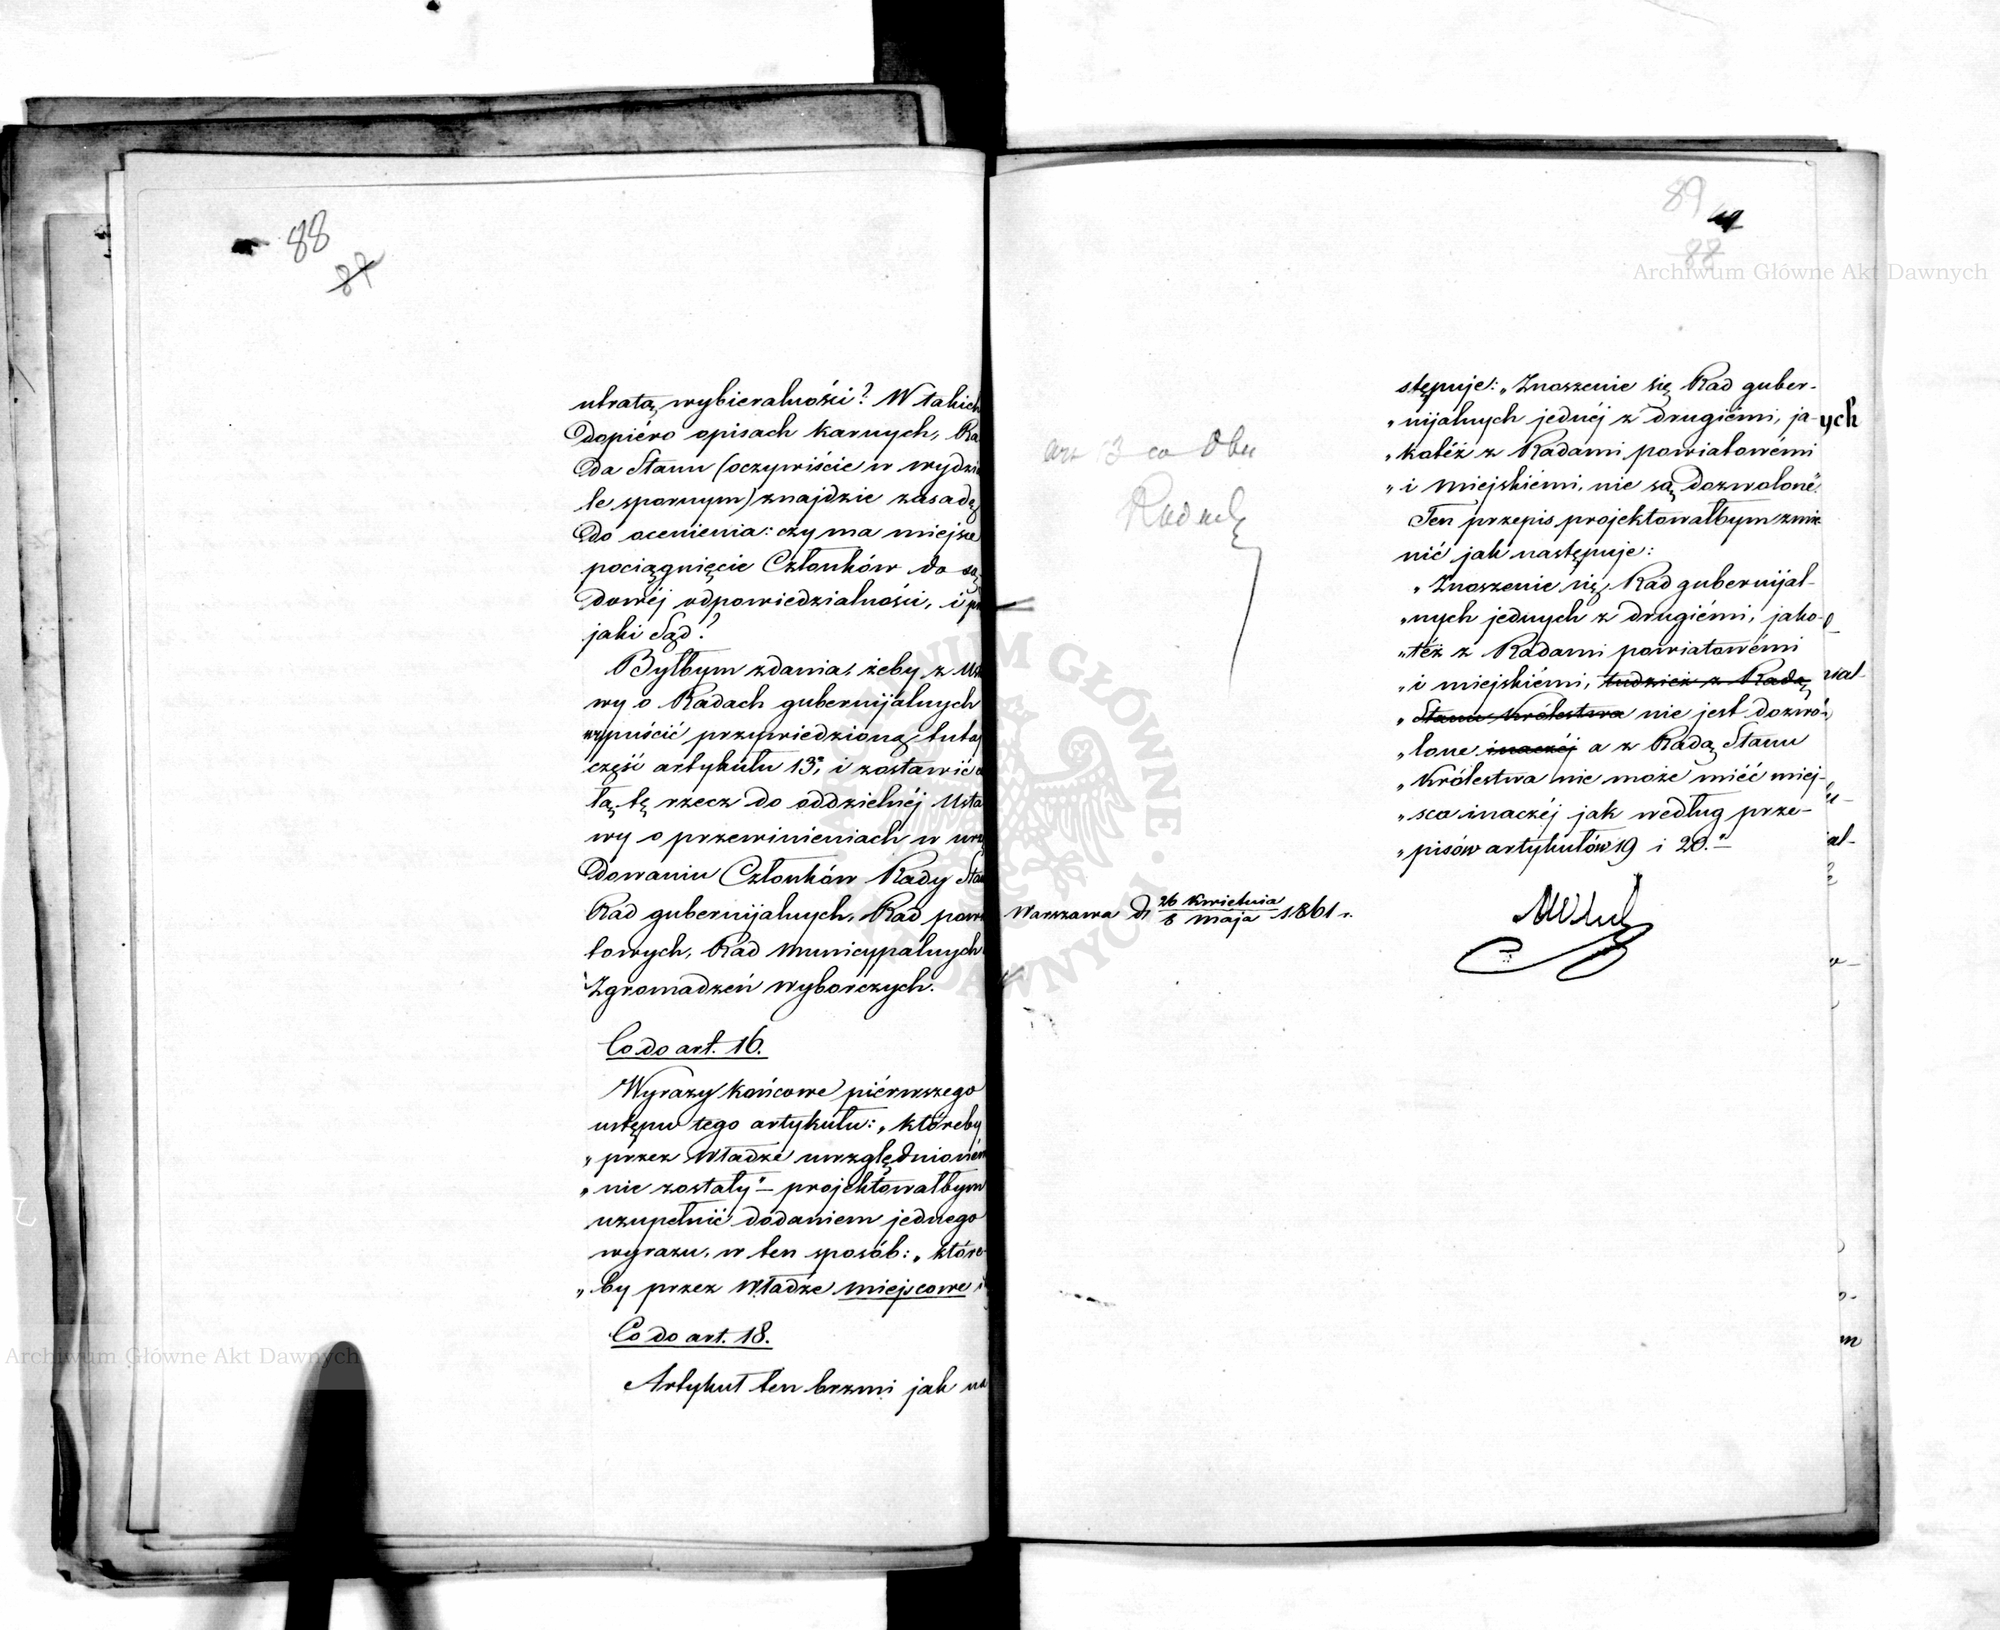 88
87
utratą wybieralności? W takich
dopiéro opisach karnych, Ra
da Stanu (oczywiście w wydzia
le spornym) znajdzie zasadę
do ocenienia: czy ma miejsce
pociągnięcie Członków do są
dowéj odpowiedzialności, i p
jaki Sąd?
Byłbym zdania, żeby z Usta
wy o Radach gubernijalnych
wypuścić przywiedzioną tutaj
część artykułu 13º, i zostawić
łą tę rzecz do oddzielnéj Usta
wy o przewinieniach w urzę
dowaniu Członków Rady Stanu
Rad gubernijalnych, Rad powia
towych, Rad Municypalnych
Zgromadzeń wyborczych.
Co do art. 16.
Wyrazy końcowe piérwszego
ustępu tego artykułu: „któreby
„przez Władze uwzględnioném
„nie zostały" – projektowałbym
uzupełnić dodaniem jednego
wyrazu, w ten sposób: „które-
„by przez Władze miejscowe
Co do art. 18.
Artykuł ten brzmi jak na
89
88
stępuje: „Znoszenie się Rad guber-
„nijalnych jednéj z drugiémi, ja-
„kotéż z Radami powiatowémi
„i miejskiémi, nie są dozwolone".
Ten przepis projektowałbym zmie
nić jak następuje:
„Znoszenie się Rad gubernijal-
„nych jednych z drugiémi, jako-
„też z Radami powiatowémi
„i miejskiémi, tudzież z Radą
„Stanu Królestwa nie jest dozwo-
„lone inaczéj a z Radą Stanu
„Królestwa nie może miéć miej-
„sca inaczéj jak według prze-
„pisów artykułów 19 i 20."–
art 13 co
Warszawa d. 26 Kwietnia / 8 Maja 1861 r.
ych
Archiwum Główne Akt Dawnych
Archiwum Główne Akt Dawnych
ARCHIWUM GŁÓWNE AKT DAWNYCH